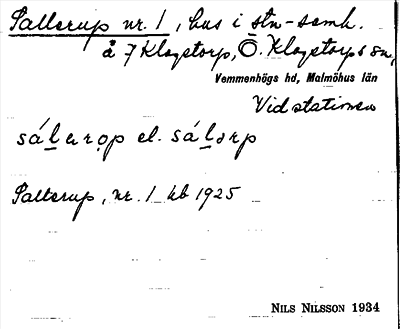 Sallerup nr. 1, hus i stn-samh.
å 7 Klagstorp, Ö. Klagstorps sn,
Vemmenhögs hd, Malmöhus län
Vid stationen
sálerop el. sálərp
Sallerup, nr. 1 kb 1925
NILS NILSSON 1934